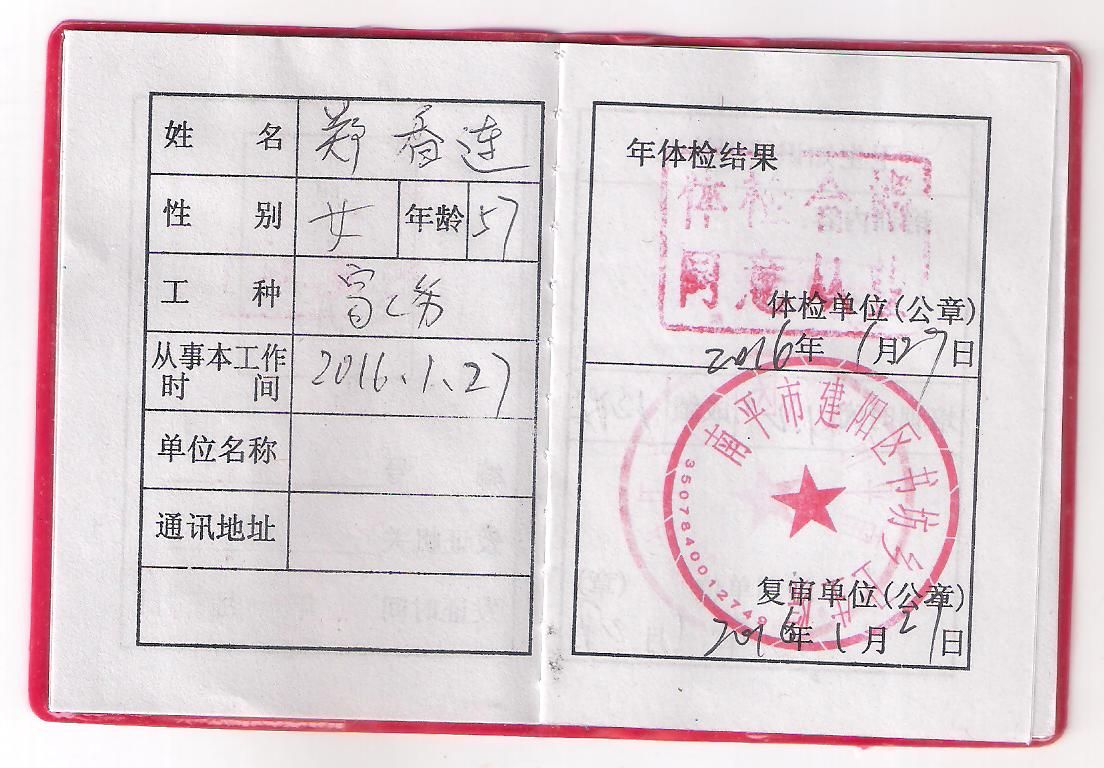 姓 名 郑香连
性 别 女 年龄 57
工 种
从事本工作
时 间 2016.1.27
单位名称
通讯地址
年体检结果
体检合格
同意从业
体检单位(公章)
2016年1月27日
南平市建阳区书坊乡卫生院
35078400012749
复审单位(公章)
2016年1月27日